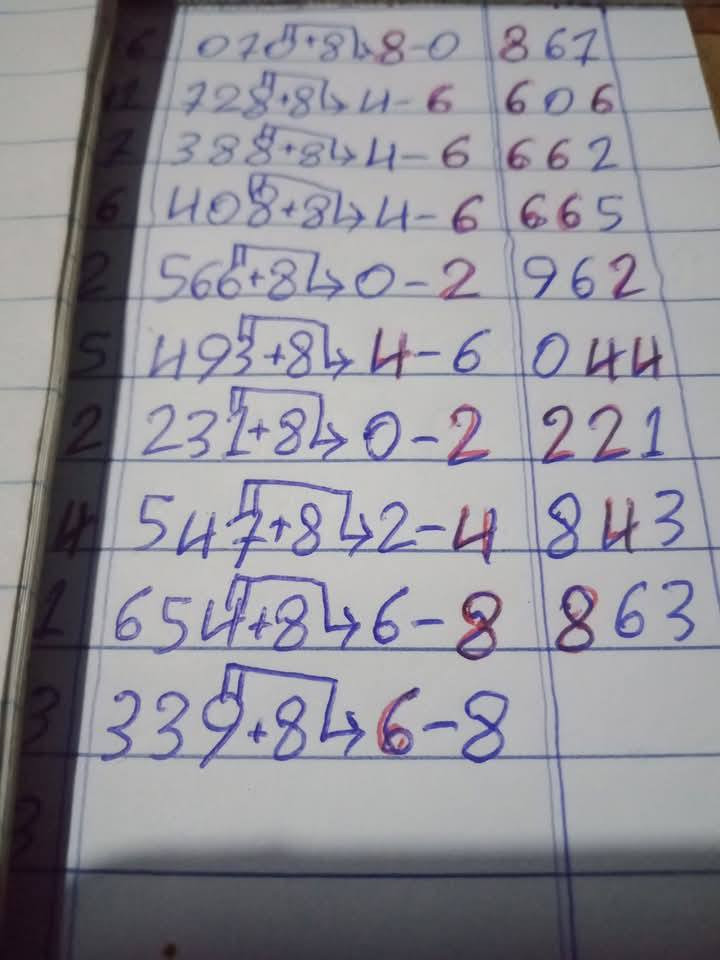 6 070+8↳8-0 867
728+8↳4-6 606
7 388+8↳4-6 662
6 408+8↳4-6 665
2 566+8↳0-2 962
5 493+8↳4-6 044
2 231+8↳0-2 221
4 547+8↳2-4 843
1 654+8↳6-8 863
3 339+8↳6-8
3